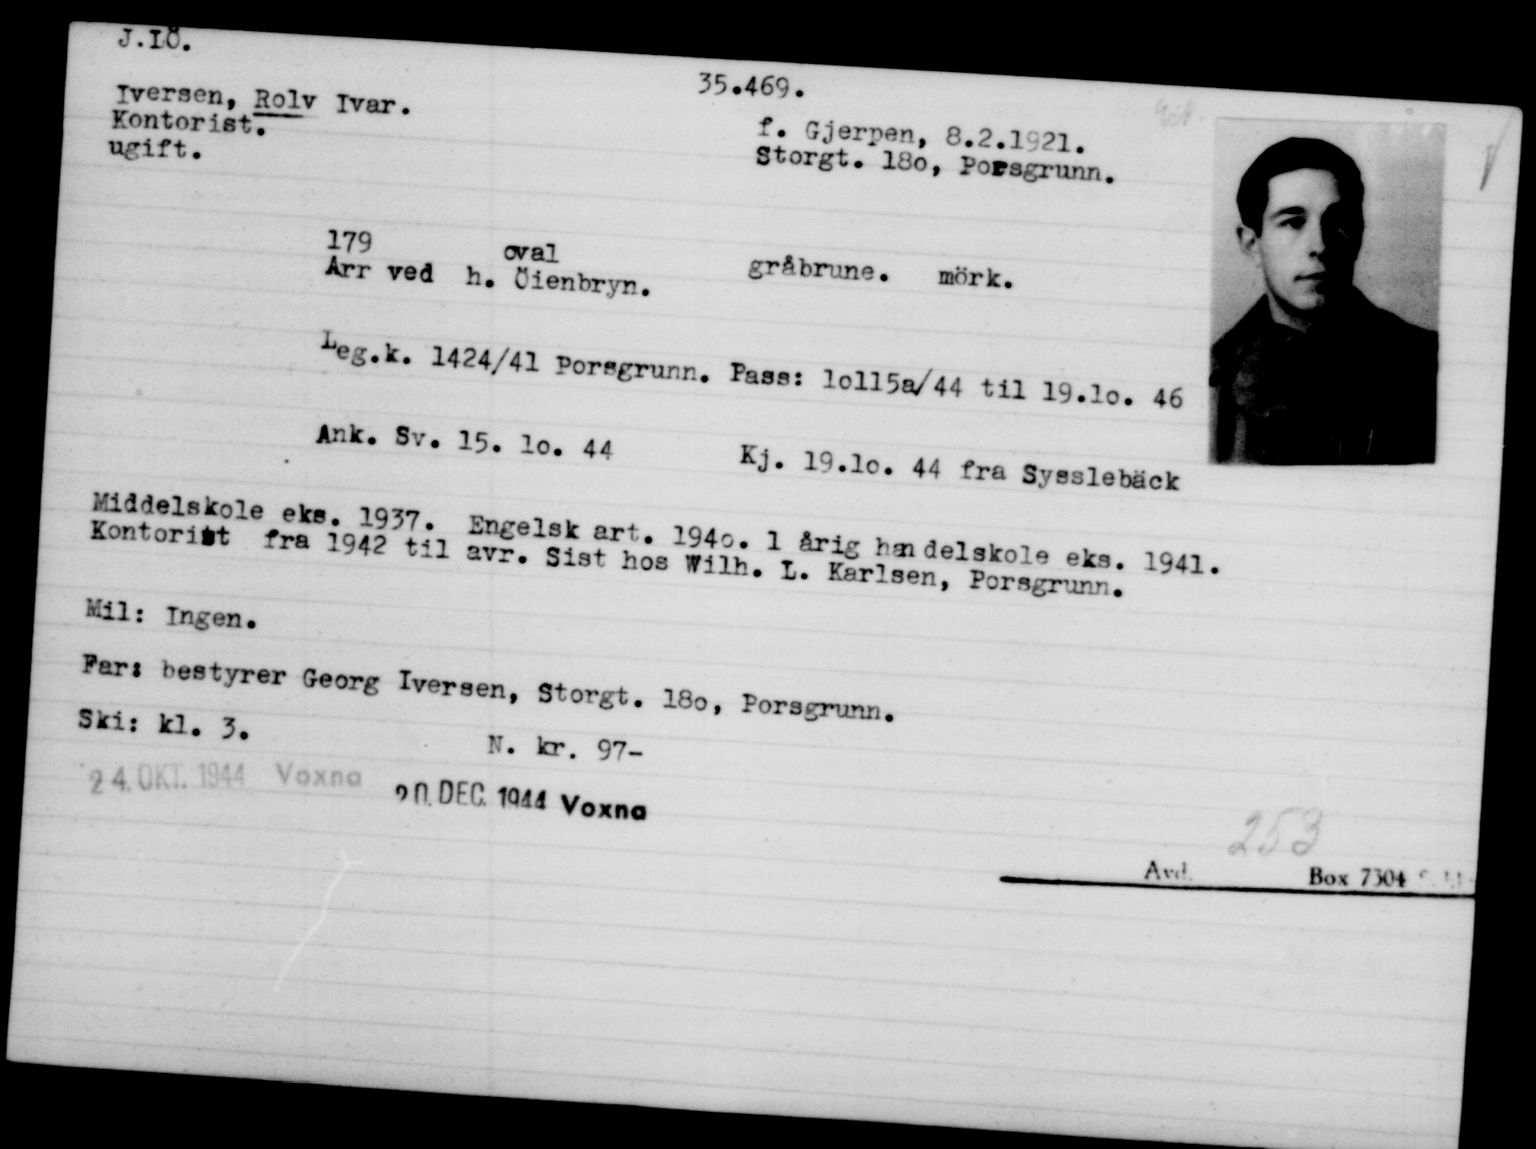 J.IÖ.
35.469.
Iversen, Rolv Ivar.
Kontorist.
ugift.
f. Gjerpen, 8.2.1921.
Storgt. 18o, Porsgrunn.
179 oval gråbrune. mörk.
Arr ved h. Öienbryn.
Leg.k. 1424/41 Porsgrunn. Pass: 1o115a/44 til 19.1o. 46
Ank. Sv. 15. 1o. 44 Kj. 19.1o. 44 fra Sysslebäck
Middelskole eks. 1937. Engelsk art. 194o. 1 årig handelskole eks. 1941.
Kontorist fra 1942 til avr. Sist hos Wilh. L. Karlsen, Porsgrunn.
Mil: Ingen.
Far: bestyrer Georg Iversen, Storgt. 18o, Porsgrunn.
Ski: kl. 3.
N. kr. 97-
24. OKT. 1944 Voxna
20. DEC. 1944 Voxna
253
Avd. Box 7304